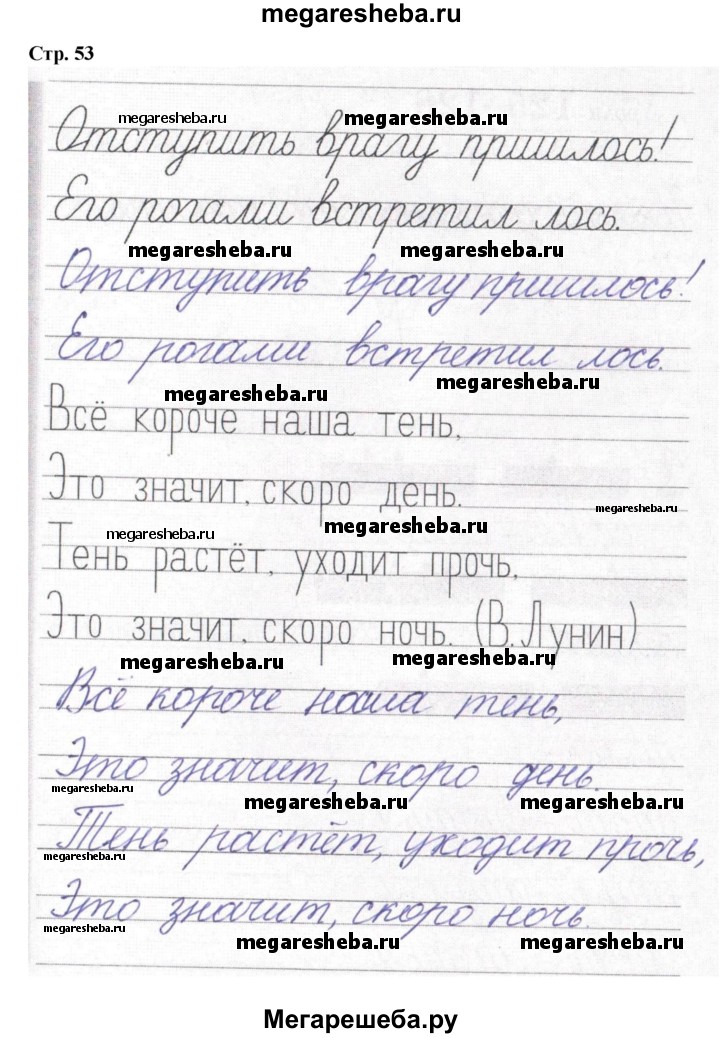 megaresheba.ru
Стр. 53
megaresheba.ru megaresheba.ru
Отступить врагу пришлось!
Его рогами встретил лось.
megaresheba.ru megaresheba.ru
Отступить врагу пришлось!
Его рогами встретил лось.
megaresheba.ru megaresheba.ru
Всё короче наша тень,
Это значит, скоро день.
megaresheba.ru megaresheba.ru megaresheba.ru
Тень растёт, уходит прочь,
Это значит, скоро ночь. (В. Лунин)
megaresheba.ru megaresheba.ru
Всё короче наша тень,
Это значит, скоро день.
megaresheba.ru megaresheba.ru megaresheba.ru
Тень растёт, уходит прочь,
megaresheba.ru
Это значит, скоро ночь.
megaresheba.ru megaresheba.ru megaresheba.ru
Мегарешеба.ру